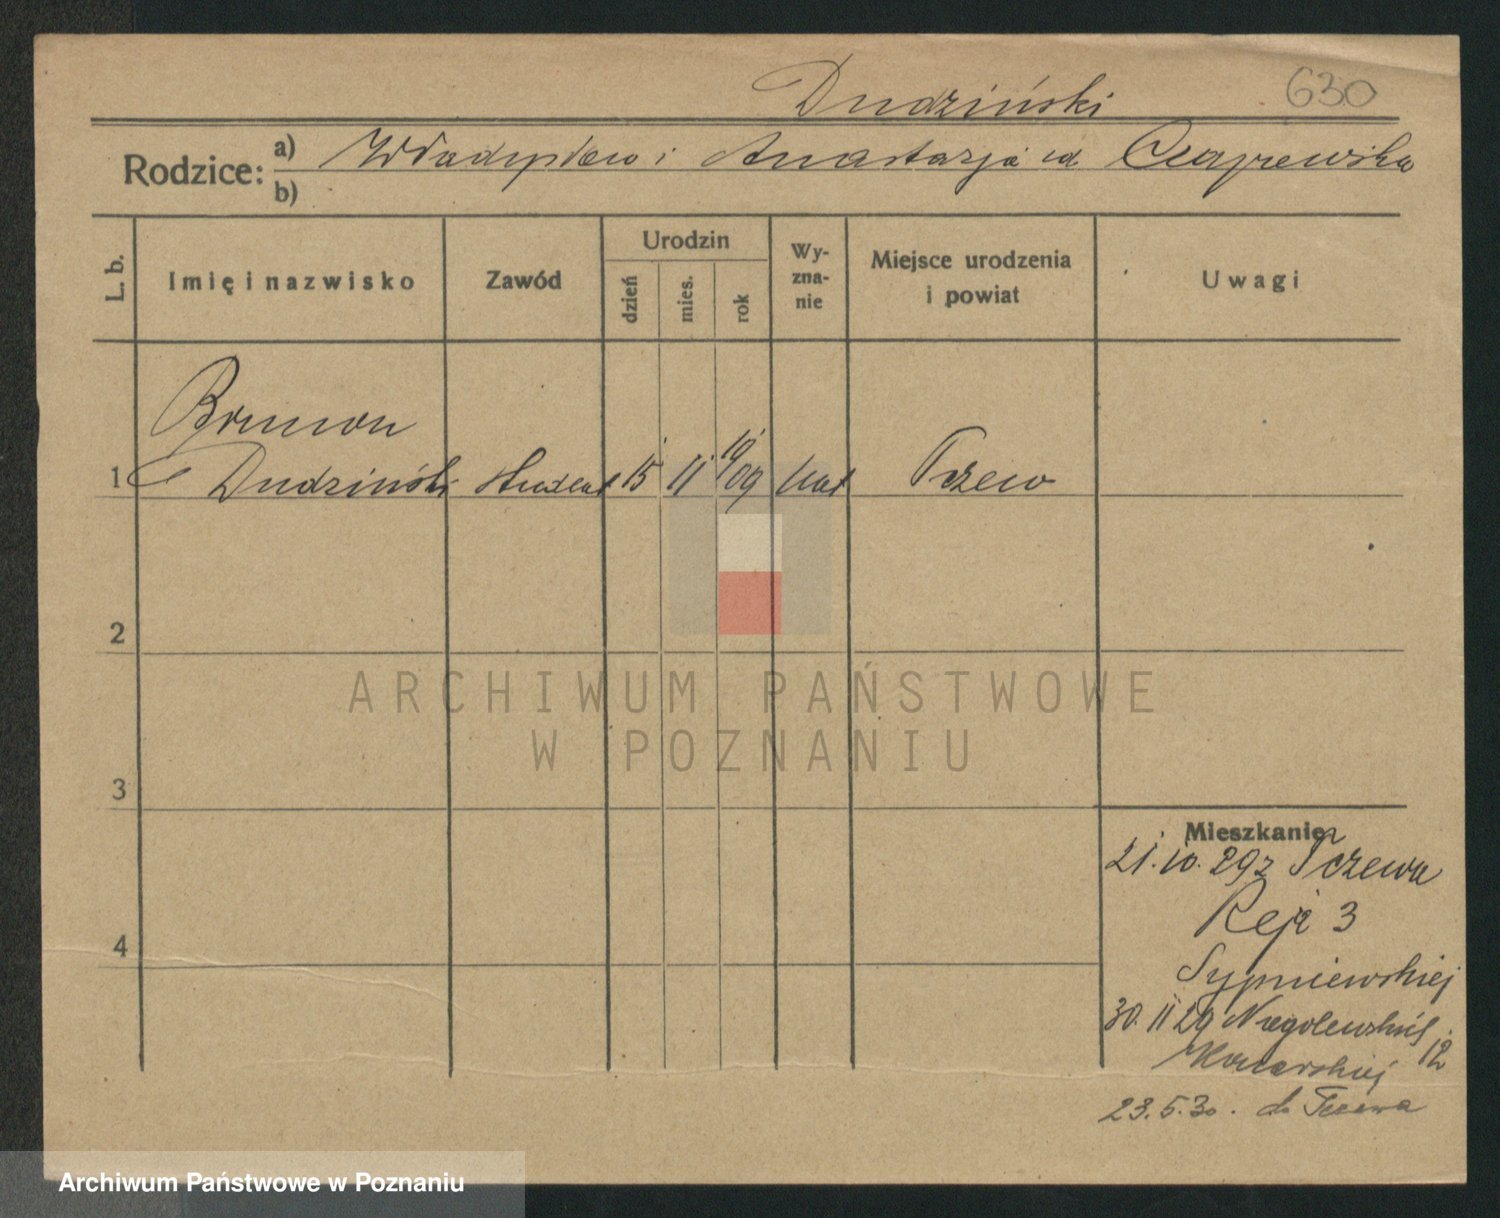 Dudziński 630
Rodzice: a) Władysław i Anastazja
b)
L. b.
Imię i nazwisko
Zawód
Urodzin
dzień
mies.
rok
Wy-
zna-
nie
Miejsce urodzenia
i powiat
Uwagi
Brunon
1 Dudziński student 15 11 09 kat Tczew
2
3
4
Mieszkanie
21.10.29 z Tczewa
Reja 3
Sypniewskiej
30.11 29 Niegolewskich 12
23.5.30. do Tczewa
ARCHIWUM PAŃSTWOWE
W POZNANIU
Archiwum Państwowe w Poznaniu